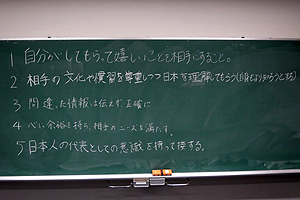 1 自分がしてもらって嬉しいことを相手にすること。
2 相手の文化や慣習を尊重しつつ日本を理解してもらう
3 間違った情報は伝えず、正確に
4 心に余裕を持ち、相手のニーズを満たす。
5 日本人の代表としての意識を持って接する。